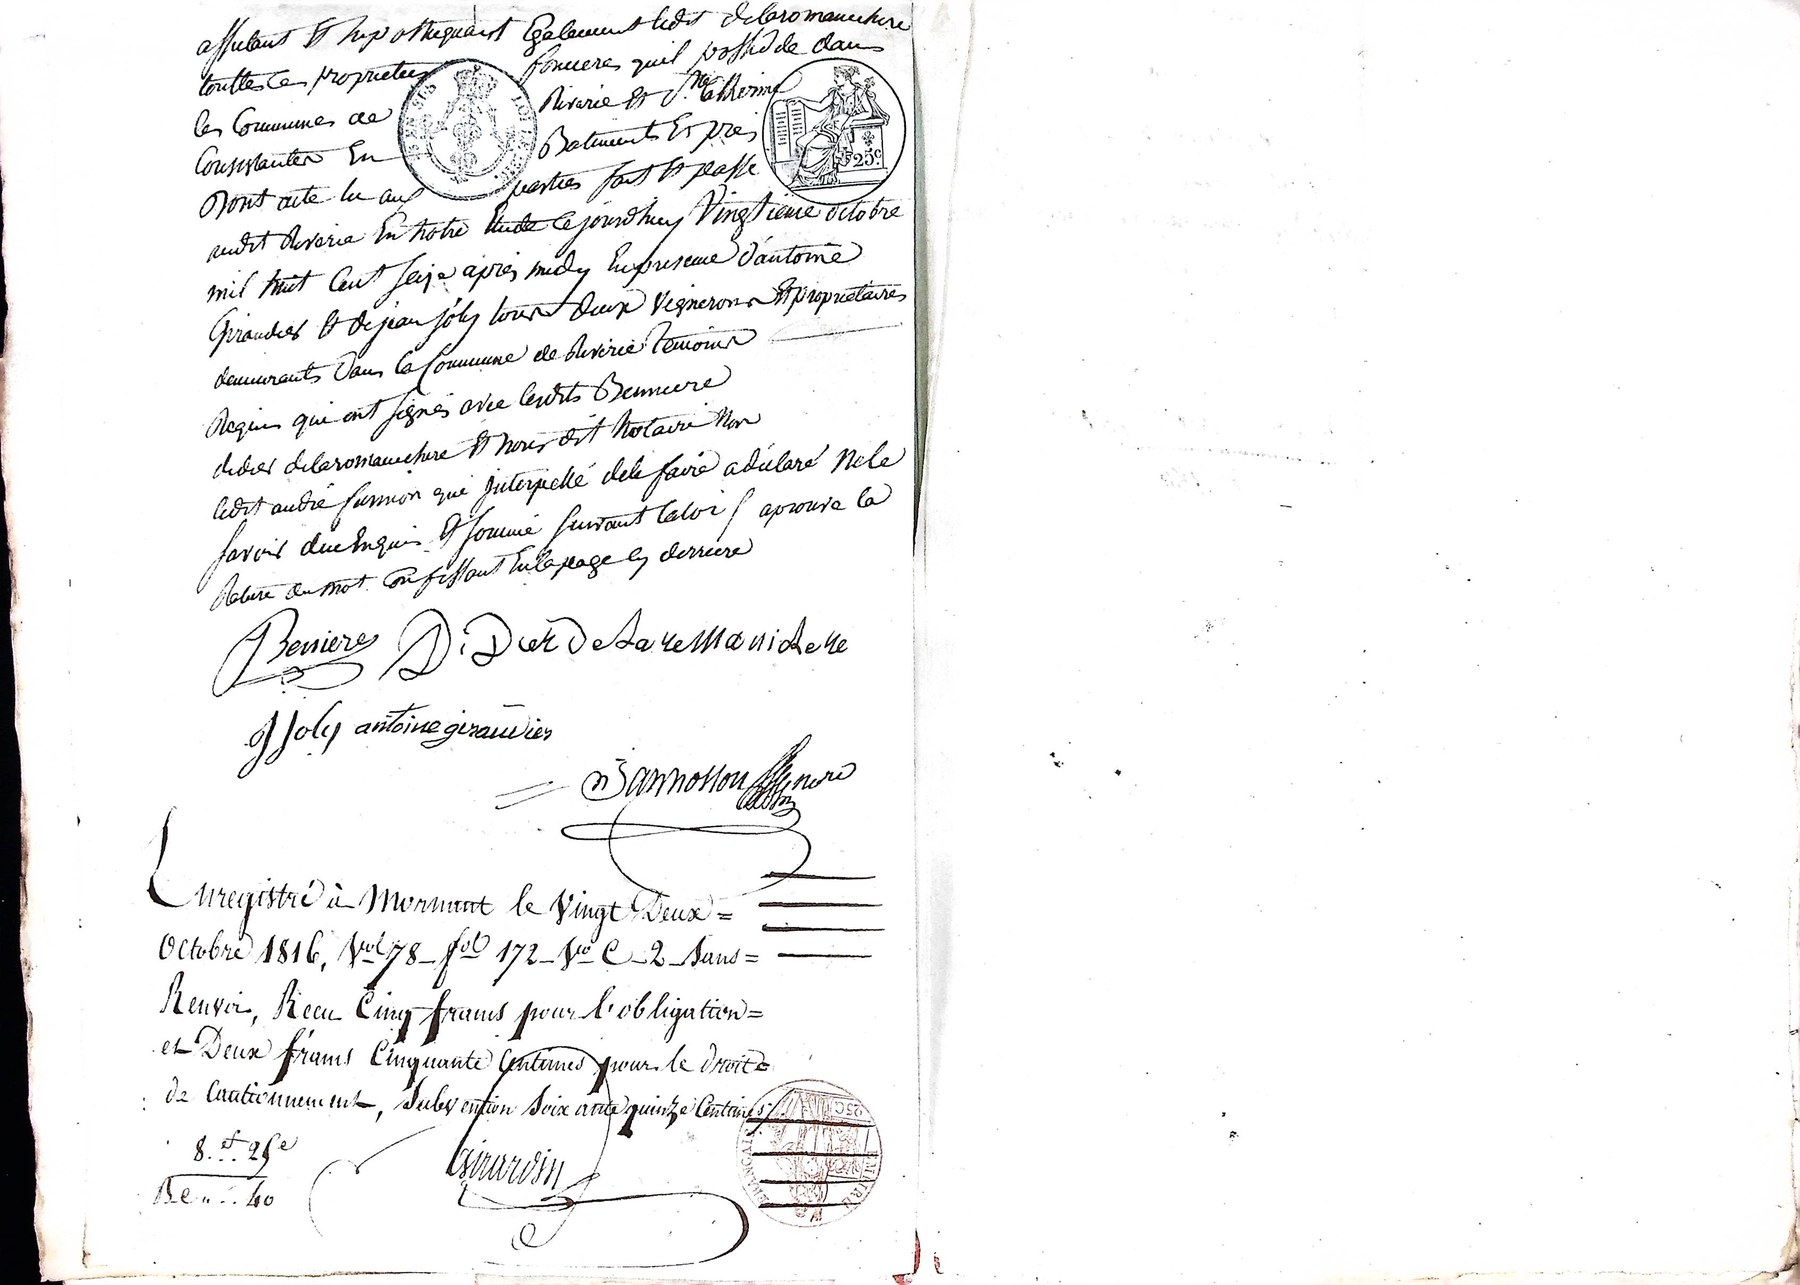 affectant et hypothequant Egalement ledit delaromanichere
toutes ces proprietes foncieres quil possede dans
les Communes de Riverie et Ste Catherine
Consistantes En Batiments Et prés
Dont acte lu aux parties fait et passé
audit Riverie En notre Etude Cejourdhuy Vingtieme octobre
mil huit Cent seize apres midy En presence d'antoine
Giraudier et de jean joly tous deux vignerons et proprietaires
demeurants dans la Commune de Riverie temoins
Requis qui ont signés avec lesdits Benniere
didier delaromanichere et nous dit Notaire Non
ledit andré qui interpellé dele faire a déclaré Nele
savoir due Enquis et sommé suivant la loi / aprouve la
Rature du mot En la page cy derriere
Bennieres DiDier De LaroManichere
J Joly antoine giraudier
Enregistré à Mornant le Vingt Deux =
Octobre 1816, Vol 78 - fol 172 - Vo C - 2 - Sans =
Renvoi, Recu Cinq francs pour l'obligation =
et Deux francs Cinquante Centimes pour le droit =
de Cautionnement, Subvention Soixante quinze Centimes /
8. f. 25 c
40
Girardin
25c.